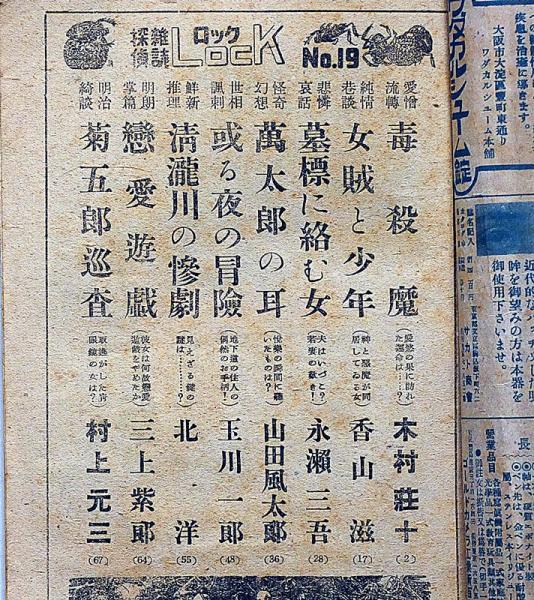 探偵雑誌
ロック
LOCK
No.19
愛憎流轉
毒殺魔
(愛慾の果に訪れた運命は…?)
木村荘十
(2)
純情巷談
女賊と少年
(神と惡魔が同居してゐる女)
香山滋
(17)
悲憐哀話
墓標に絡む女
(夫はいづこ?若妻の歎き!)
永瀬三吾
(28)
怪奇幻想
萬太郎の耳
(悦樂の瞬間に聽いたものは?)
山田風太郎
(36)
世相諷刺
或る夜の冒險
(地下道の住人の偶然のお手柄!)
玉川一郎
(48)
鮮新推理
淸瀧川の慘劇
(見えざる鍵の謎は……?)
北洋
(55)
明朗掌篇
戀愛遊戯
(彼女は何故戀愛遊戯をやめたか)
三上紫郎
(64)
明治綺談
菊五郎巡査
村上元三
(67)
疾患を治癒に導きます。
大阪市大淀區
ワダカルシューム本舗
ワダカルシューム錠
近代的な
眸を御望みの方は本器を
御使用下さいませ。
營業品目